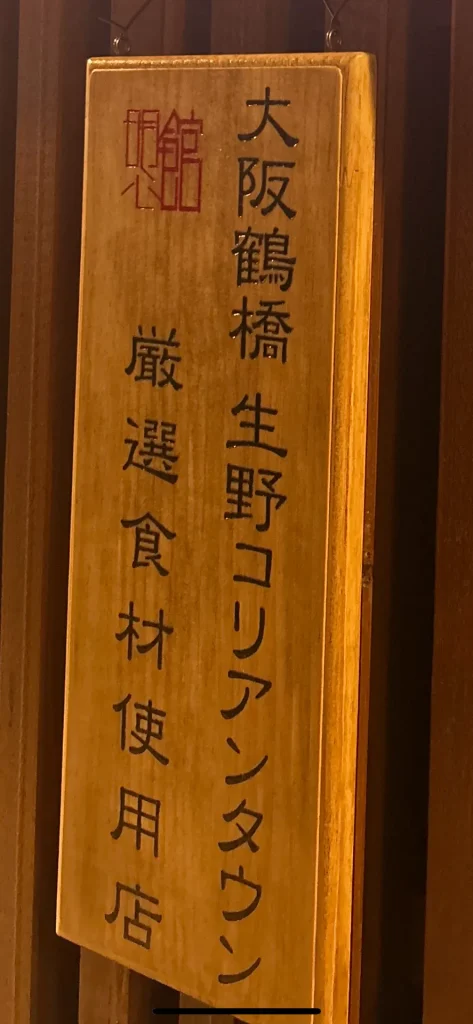 大阪鶴橋 生野コリアンタウン
厳選食材使用店